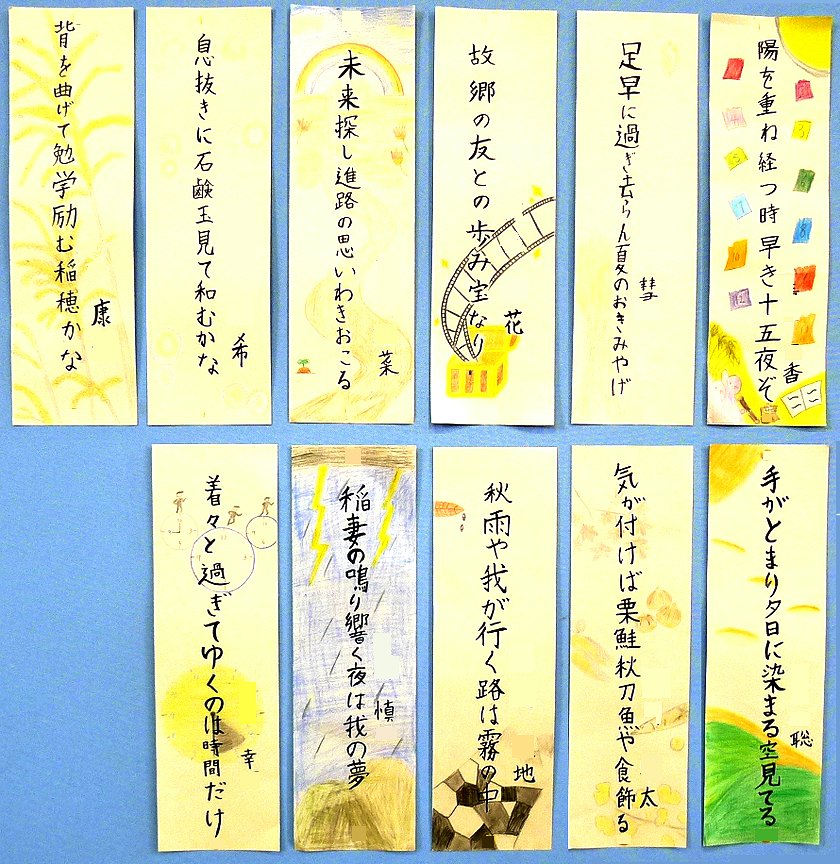 陽を重ね経つ時早き十五夜ぞ
香
足早に過ぎ去らん夏のおきみやげ
彗
故郷の友との歩み宝なり
花
未来探し進路の思いわきおこる
菜
息抜きに石鹸玉見て和むかな
希
背を曲げて勉学励む稲穂かな
康
手がとまり夕日に染まる空見てる
聡
気が付けば栗鮭秋刀魚や食飾る
太
秋雨や我が行く路は霧の中
地
稲妻の鳴り響く夜は我の夢
慎
着々と過ぎてゆくのは時間だけ
幸